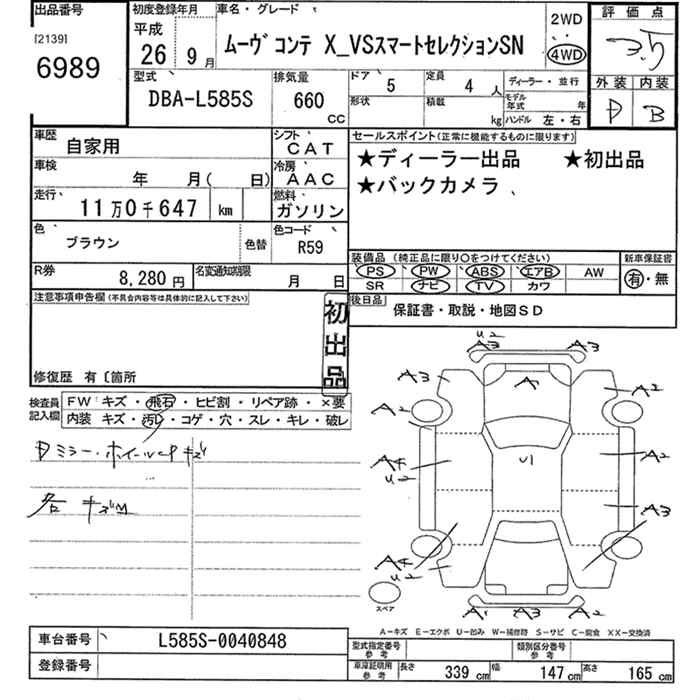 出品番号
[2139]
6989
初度登録年月
平成
26 9月
車名・グレード
ムーヴ コンテ X_VSスマートセレクションSN
2WD
4WD
評価点
3.5
外装 内装
D B
型式
DBA-L585S
排気量
660
CC
ドア
5
定員
4 人
形状
積載
kg
ディーラー・並行
モデル年式 年
ハンドル 左・右
車歴
自家用
シフト
CAT
車検
年 月( 日)
冷房
AAC
走行
11万0千647 km
燃料
ガソリン
色
ブラウン
色替
色コード
R59
R券
8,280円
名変通知期限
月 日
セールスポイント(正常に機能するものに限ります)
★ディーラー出品 ★初出品
★バックカメラ
装備品 (純正品に限り○をつけてください)
新車保証書
PS PW ABS エアB AW
SR ナビ TV カワ
有・無
後日品
保証書・取説・地図SD
注意事項申告欄(不具合内容等は具体的に記入して下さい)
初出品
修復歴 有〔箇所
検査員記入欄
FW キズ・飛石・ヒビ割・リペア跡・×要
内装 キズ・汚レ・コゲ・穴・スレ・キレ・破レ
Dミラー・ホイールCPキズ
各キズM
U2
A3 A3
A3 A1 A2
A2
A4 U1 A2
U2
A3
A4
U2
A1 A3 A2
スペア
A-キズ E-エクボ U-凹み W-補修跡 S-サビ C-腐食 XX-交換済
車台番号
L585S-0040848
登録番号
型式指定番号
参考
類別区分番号
参考
車庫証明用
参考
長さ 339 cm 幅 147 cm 高さ 165 cm